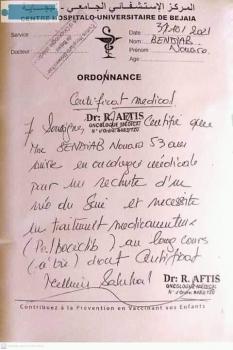 المركز الإستشفائي الجامعي - بجاية
CENTRE HOSPITALO-UNIVERSITAIRE DE BEJAIA
Service
Date
Docteur
Nom BENDJAB
Prénom Nouara
Age
ORDONNANCE
Certificat médical
Dr: R. AFTIS
ONCOLOGUE MEDICAL
Je soussigné, Certifie que
Mme BENDJAB Nouara 53 ans
suivie en oncologie médicale
pour une rechute d'un
néo du sein et nécessite
un traitement médicamenteux
(Palbociclib) au long cours
(à vie) dont Certificat
Dr: R. AFTIS
ONCOLOGUE MEDICAL
Contribuez à la Prévention en Vaccinant vos Enfants